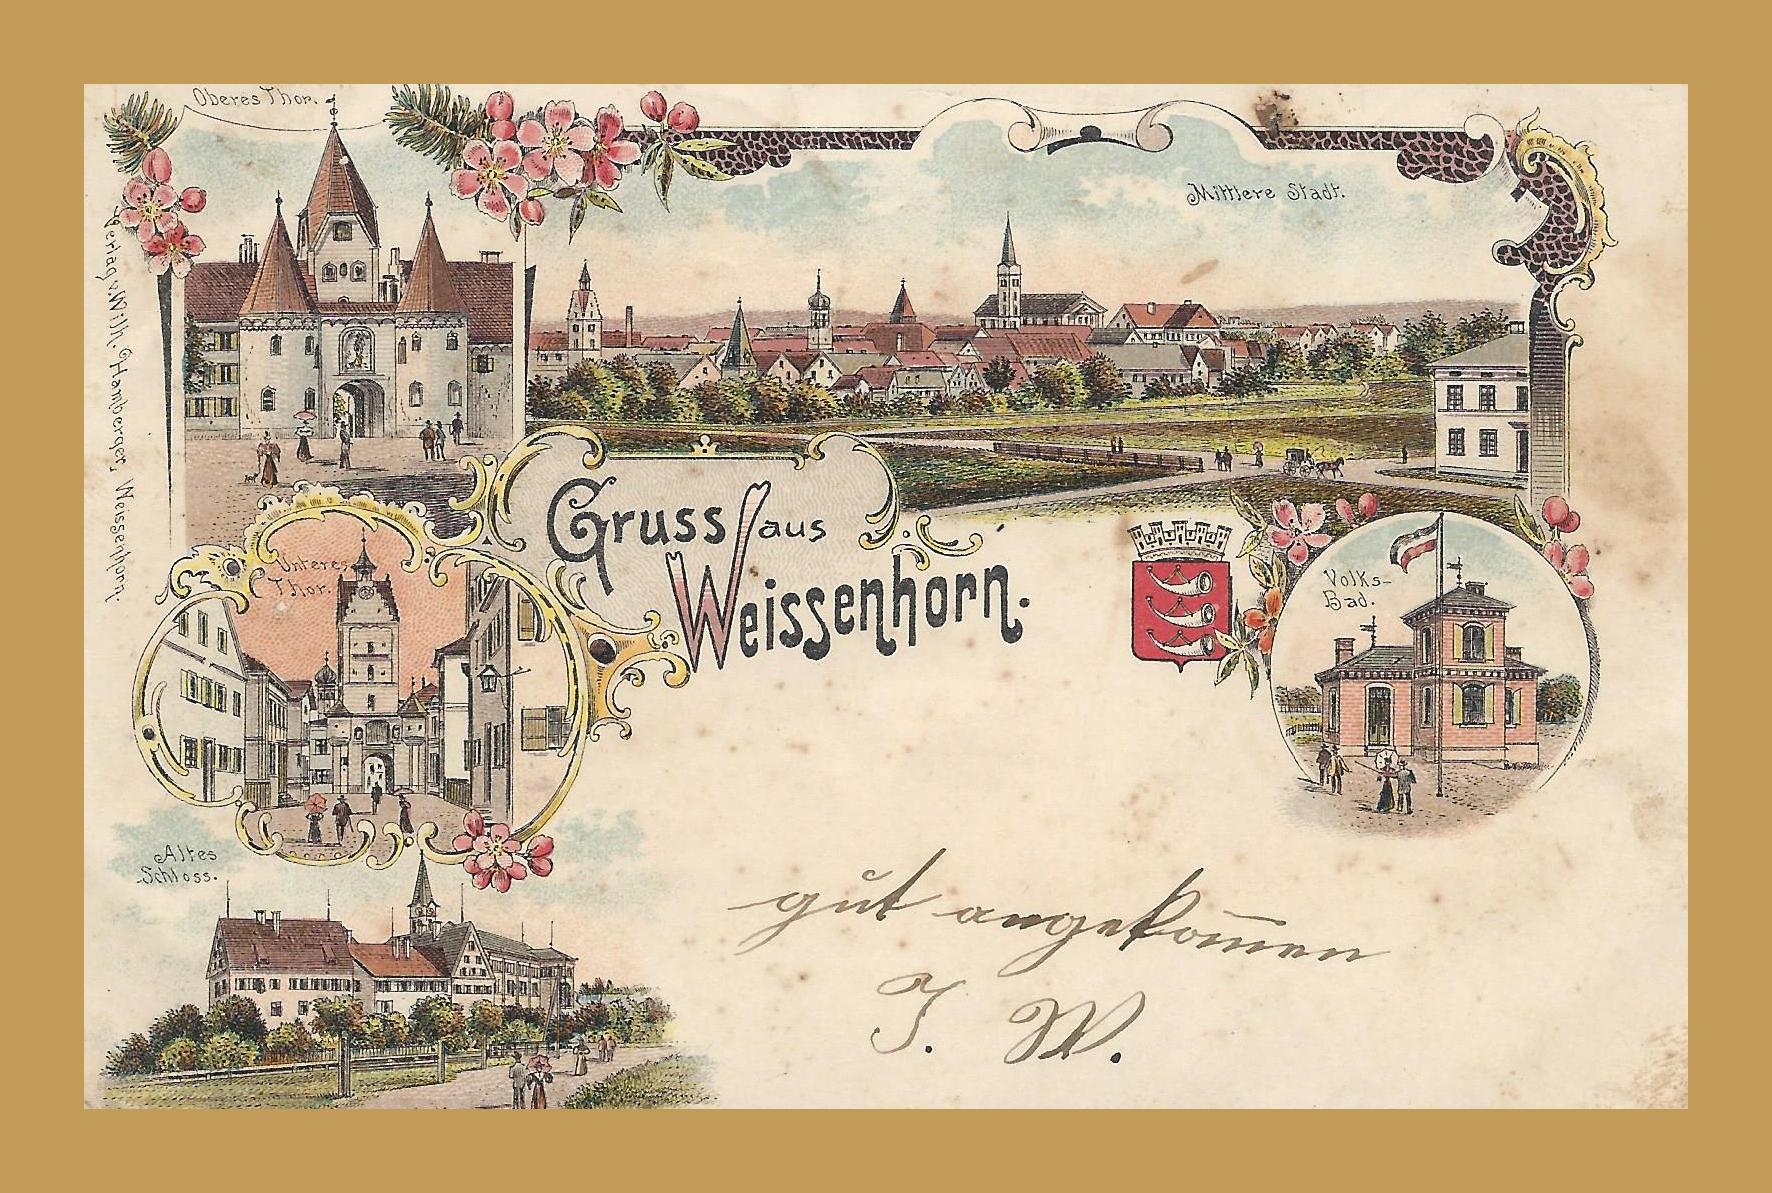 Oberes Thor.
Mittlere Stadt.
Verlag v. Wilh. Hamberger, Weissenhorn.
Gruss aus
Weissenhorn.
Unteres
Thor.
Volks-
Bad.
Altes
Schloss.
gut angekom̄en
J. W.